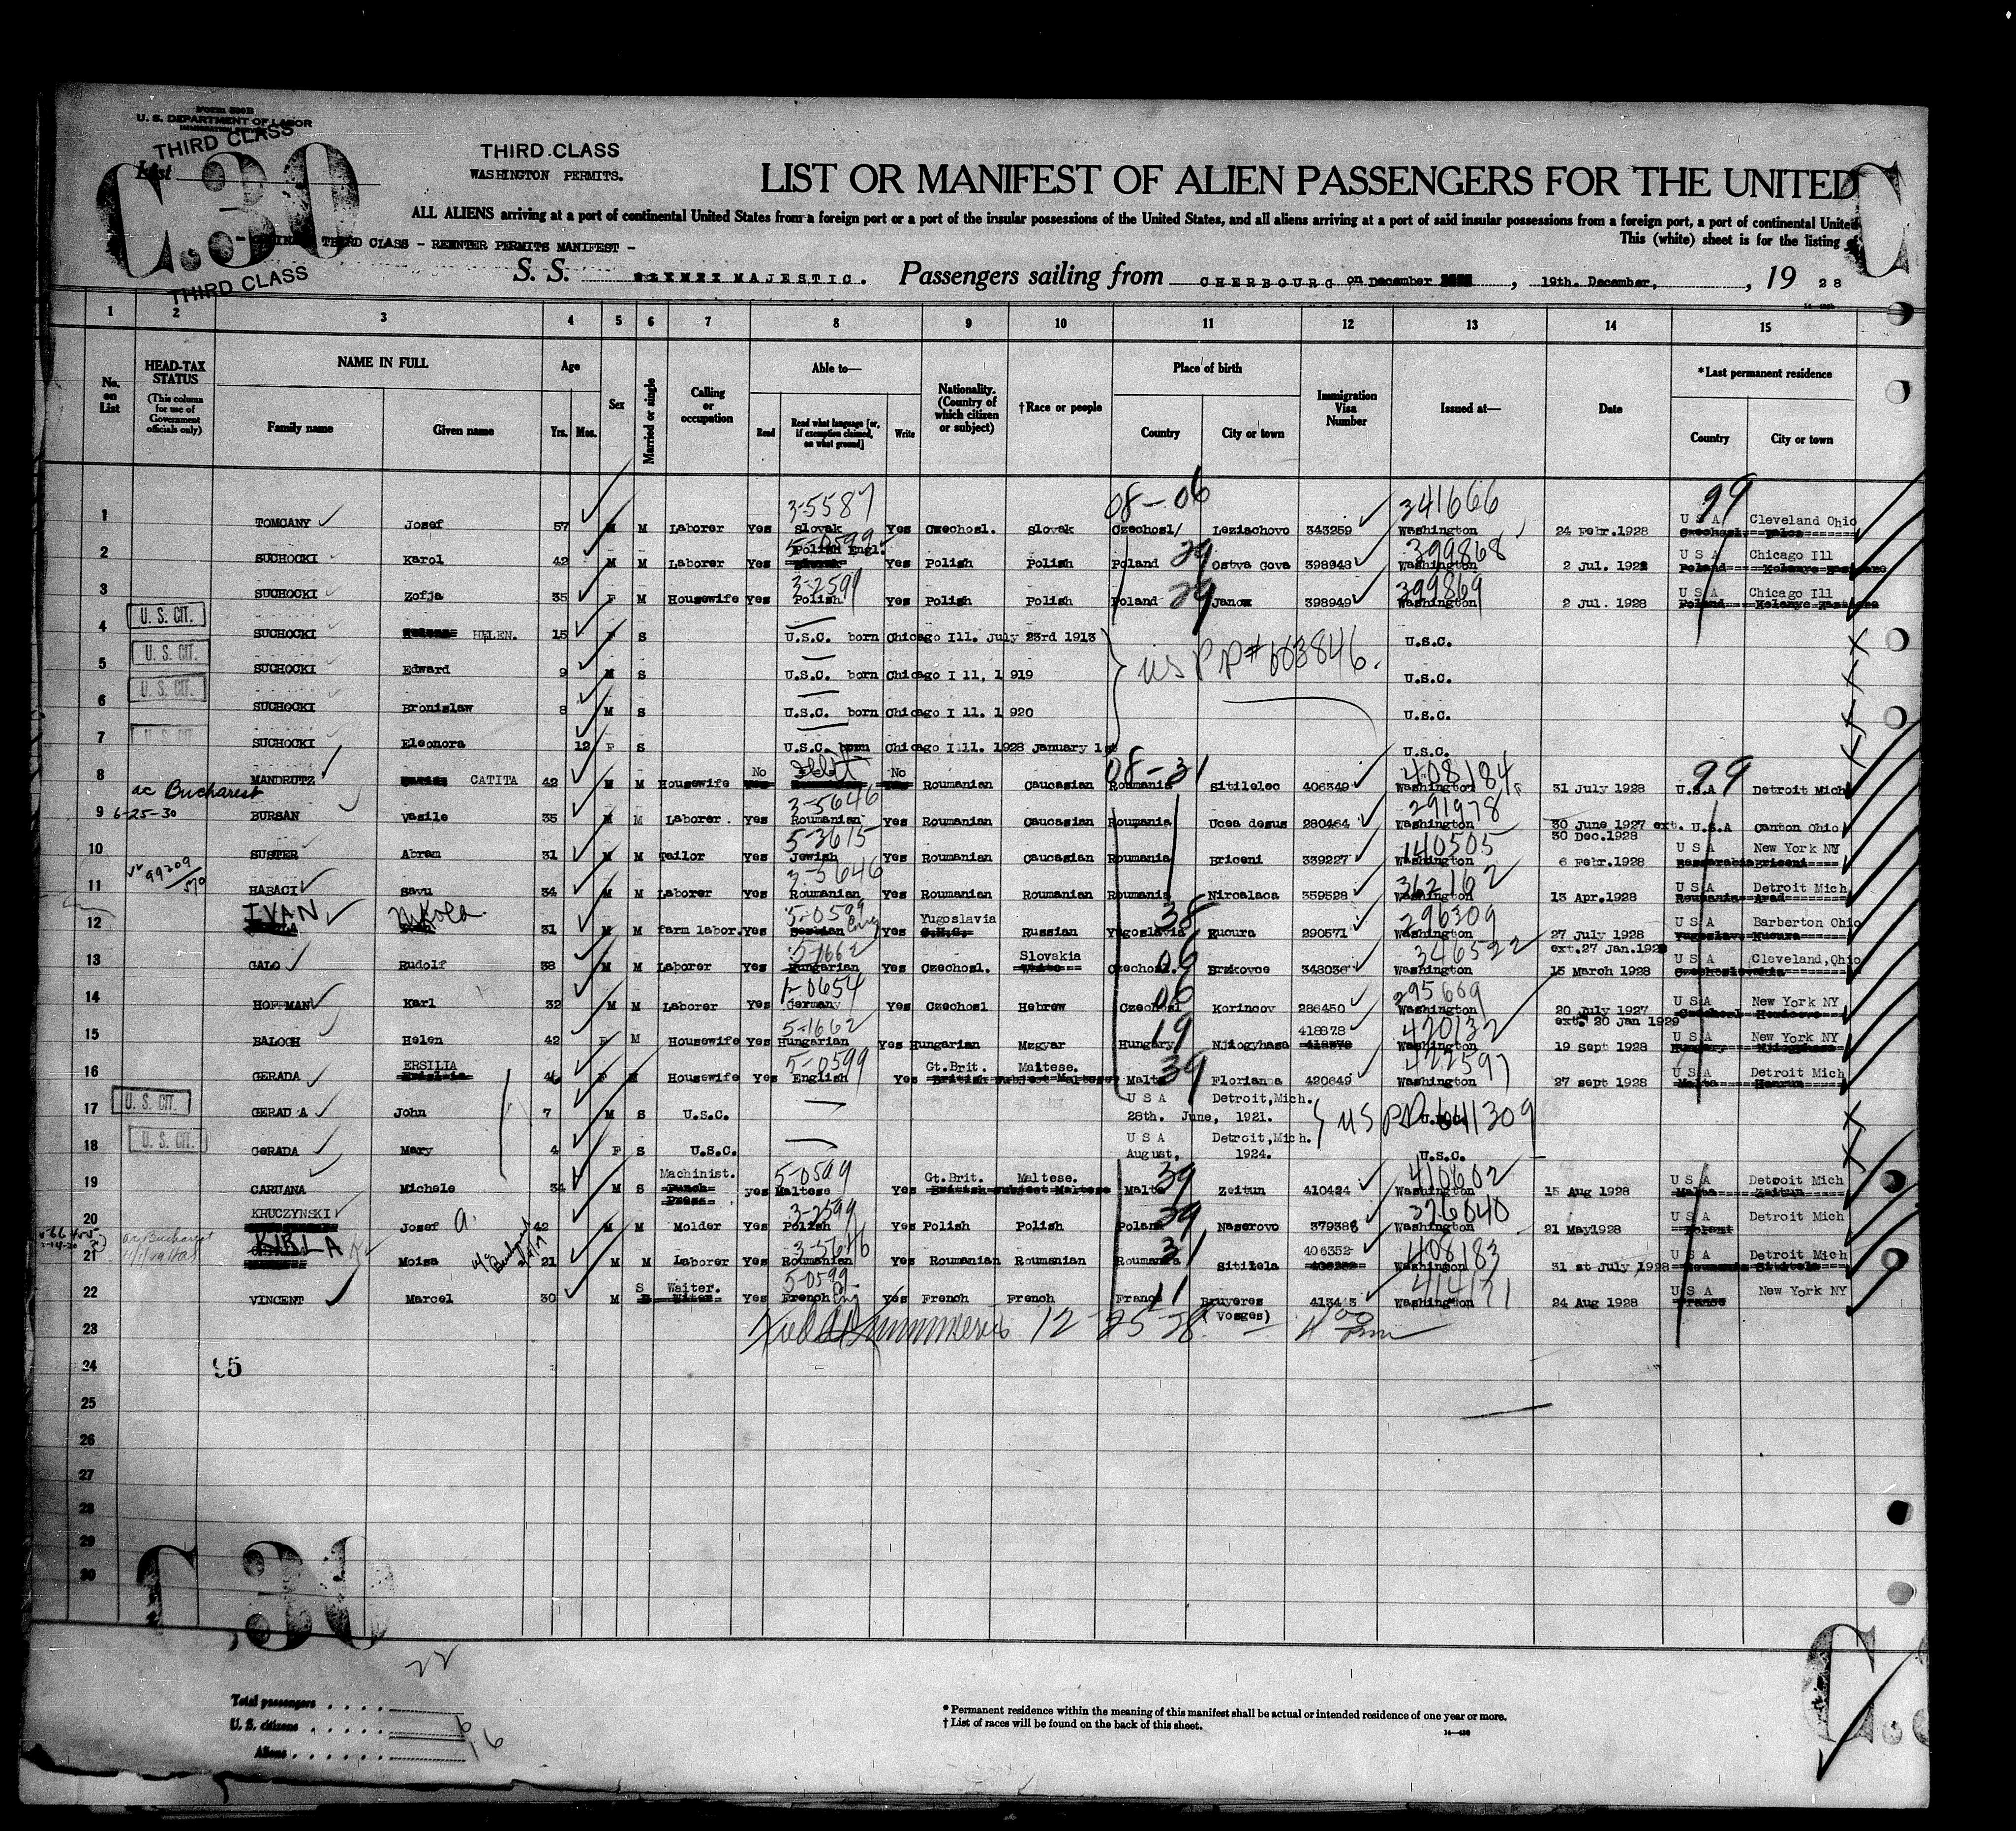 Form 500B
U. S. DEPARTMENT OF LABOR
THIRD CLASS
List
C.30
THIRD CLASS
THIRD CLASS
WASHINGTON PERMITS.
LIST OR MANIFEST OF ALIEN PASSENGERS FOR THE UNITED
C
ALL ALIENS arriving at a port of continental United States from a foreign port or a port of the insular possessions of the United States, and all aliens arriving at a port of said insular possessions from a foreign port, a port of continental United
This (white) sheet is for the listing
THIRD CLASS - REENTER PERMITS MANIFEST -
S. S. MAJESTIC. Passengers sailing from CHERBOURG on December , 19th. December, , 19 28
1 2 3 4 5 6 7 8 9 10 11 12 13 14 15
No. on List
HEAD-TAX STATUS
(This column for use of Government officials only)
NAME IN FULL
Family name Given name
Age
Yrs. Mos.
Sex
Married or single
Calling or occupation
Able to—
Read Read what language [or, if exemption claimed, on what ground] Write
Nationality. (Country of which citizen or subject)
†Race or people
Place of birth
Country City or town
Immigration Visa Number
Issued at—
Date
*Last permanent residence
Country City or town
3-5587 08-06 341666 99
1 TOMCANY Josef 57 M M Laborer Yes Slovak Yes Czechosl. Slovak Czechosl/ Leziachovo 343259 Washington 24 Febr.1928 U S A Cleveland Ohio
5-0599 399868
2 SUCHOCKI Karol 42 M M Laborer Yes Polish Engl. Yes Polish Polish Poland 29 Ostva Gova 398948 Washington 2 Jul. 1928 U S A Chicago Ill
3-2599 399869
3 SUCHOCKI Zofja 35 F M Housewife Yes Polish Yes Polish Polish Poland 29 Janow 398949 Washington 2 Jul. 1928 U S A Chicago Ill
U. S. CIT.
4 SUCHOCKI HELEN. 15 F S U.S.C. born Chicago Ill. July 23rd 1913 U.S.C.
US PP# 603846.
U. S. CIT.
5 SUCHOCKI Edward 9 M S U.S.C. born Chicago I ll, 1 919 U.S.C.
U. S. CIT.
6 SUCHOCKI Bronislaw 8 M S U.S.C. born Chicago I ll. 1 920 U.S.C.
U. S. CIT.
7 SUCHOCKI Eleonora 12 F S U.S.C. born Chicago Ill. 1928 January 1st U.S.C.
08-31 408184 99
8 MANDRUTZ CATITA 42 M M Housewife No No Roumanian Caucasian Roumania Sitilelec 406349 Washington 31 July 1928 U.S.A Detroit Mich
ac Bucharest 3-5646 291978
9 6-25-30 BURSAN Vasile 35 M M Laborer. Yes Roumanian Yes Roumanian Caucasian Roumania Ucea desus 280464 Washington 30 June 1927 ext. 30 Dec.1928 U.S.A Canton Ohio
5-3615 140505
10 SUSTER Abram 31 M M Tailor Yes Jewish Yes Roumanian Caucasian Roumania Briceni 339227 Washington 6 Febr.1928 U S A New York NY
99209/570 3-5646 362162
11 HABACI Savu 34 M M Laborer Yes Roumanian Yes Roumanian Roumanian Roumania Nircalaca 359528 Washington 13 Apr.1928 U S A Detroit Mich
5-0599 296309
12 IVAN Nikola 31 M M farm labor. Yes Eng Yes Yugoslavia Russian Yugoslavia 38 Rucura 290571 Washington 27 July 1928 ext.27 Jan.1929 U S A Barberton Ohio
5-1662 346522
13 GALO Rudolf 38 M M Laborer Yes Hungarian Yes Czechosl. Slovakia Czechosl. 06 Brzkovce 348036 Washington 15 March 1928 U S A Cleveland,Ohio
1-0654 295669
14 HOFFMAN Karl 32 M M Laborer Yes Germany Yes Czechosl Hebrew Czechosl 06 Korincov 286450 Washington 20 July 1927 ext. 20 Jan 1929 U S A New York NY
5-1662 420132
15 BALOGH Helen 42 F M Housewife Yes Hungarian Yes Hungarian Magyar Hungary 19 Njiogyhaza 418878 Washington 19 sept 1928 U S A New York NY
5-0599 422597
16 GERADA ERSILIA F M Housewife Yes English Yes Gt.Brit. Maltese. Malta 39 Florianna 420649 Washington 27 sept 1928 U S A Detroit Mich
U. S. CIT.
17 GERADA John 7 M S U.S.C. U S A Detroit,Mich. 28th. June, 1921. US PP. 641309
U. S. CIT.
18 GERADA Mary 4 F S U.S.C. U S A Detroit,Mich. August, 1924. U.S.C.
5-0599 410602
19 CARUANA Michele 34 M S Machinist. yes Maltese Yes Gt.Brit. Maltese. Malta 39 Zeitun 410424 Washington 15 Aug 1928 U S A Detroit Mich
3-2599 376040
20 KRUCZYNSKI Josef a. 42 M M Molder Yes Polish Yes Polish Polish Poland 29 Naserovo 379386 Washington 21 May1928 U S A Detroit Mich
3-5646 408183
21 KIRLA Moisa 21 M M Laborer Yes Roumanian Yes Roumanian Roumanian Roumania 31 Sitilela 406352 Washington 31 st July 1928 U S A Detroit Mich
5-0599 414171
22 VINCENT Marcel 30 M S Waiter. Yes French Eng Yes French French France 11 Bruyeres (Vosges) 41343 Washington 24 Aug 1928 U S A New York NY
23 12-25-28
24 95
25
26
27
28
29
30
C.30
22
Total passengers . . . .
U. S. citizens . . . . . 6
Aliens . . . . . . 16
* Permanent residence within the meaning of this manifest shall be actual or intended residence of one year or more.
† List of races will be found on the back of this sheet.
14—430
C.